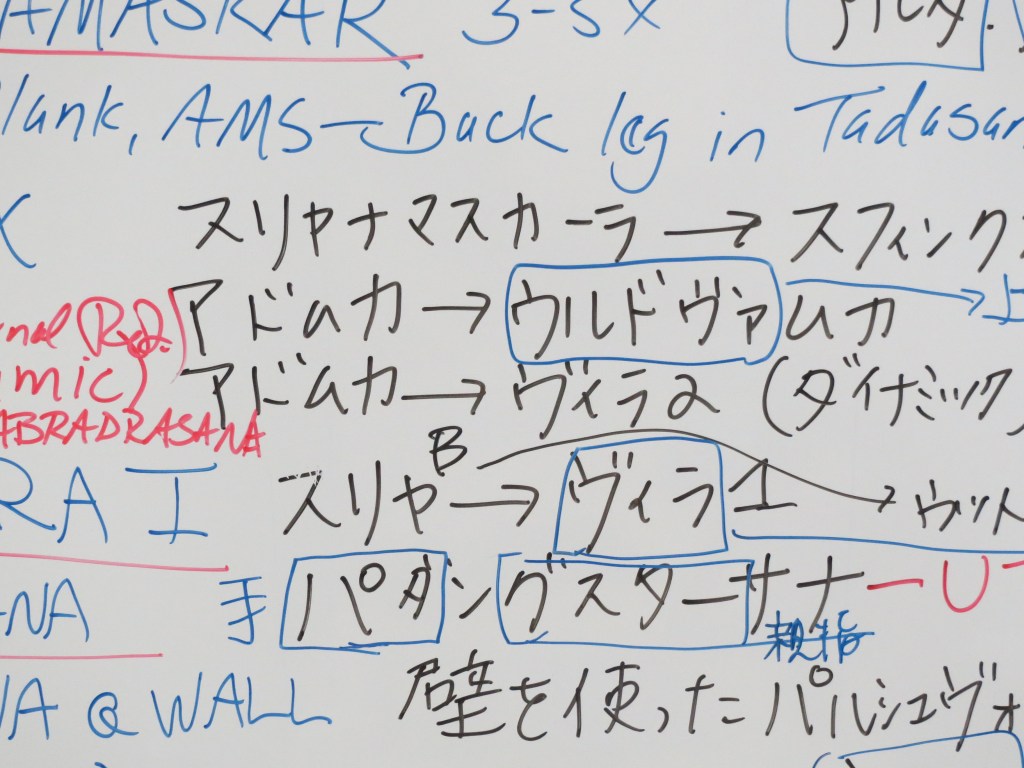 AMASKAR 3-5X
lank, AMS—Back leg in Tadasan
スリヤナマスカーラ → スフィンク
アドムカ → ウルドヴァムカ
nal Rod.
アドムカ → ヴィラ2 (ダイナミック)
mic)
ABRADRASANA
RA I スリヤB → ヴィラ1 → ウット
NA 手 パダングスターサナ - U
親指
NA @ WALL 壁を使ったパルシュヴォ